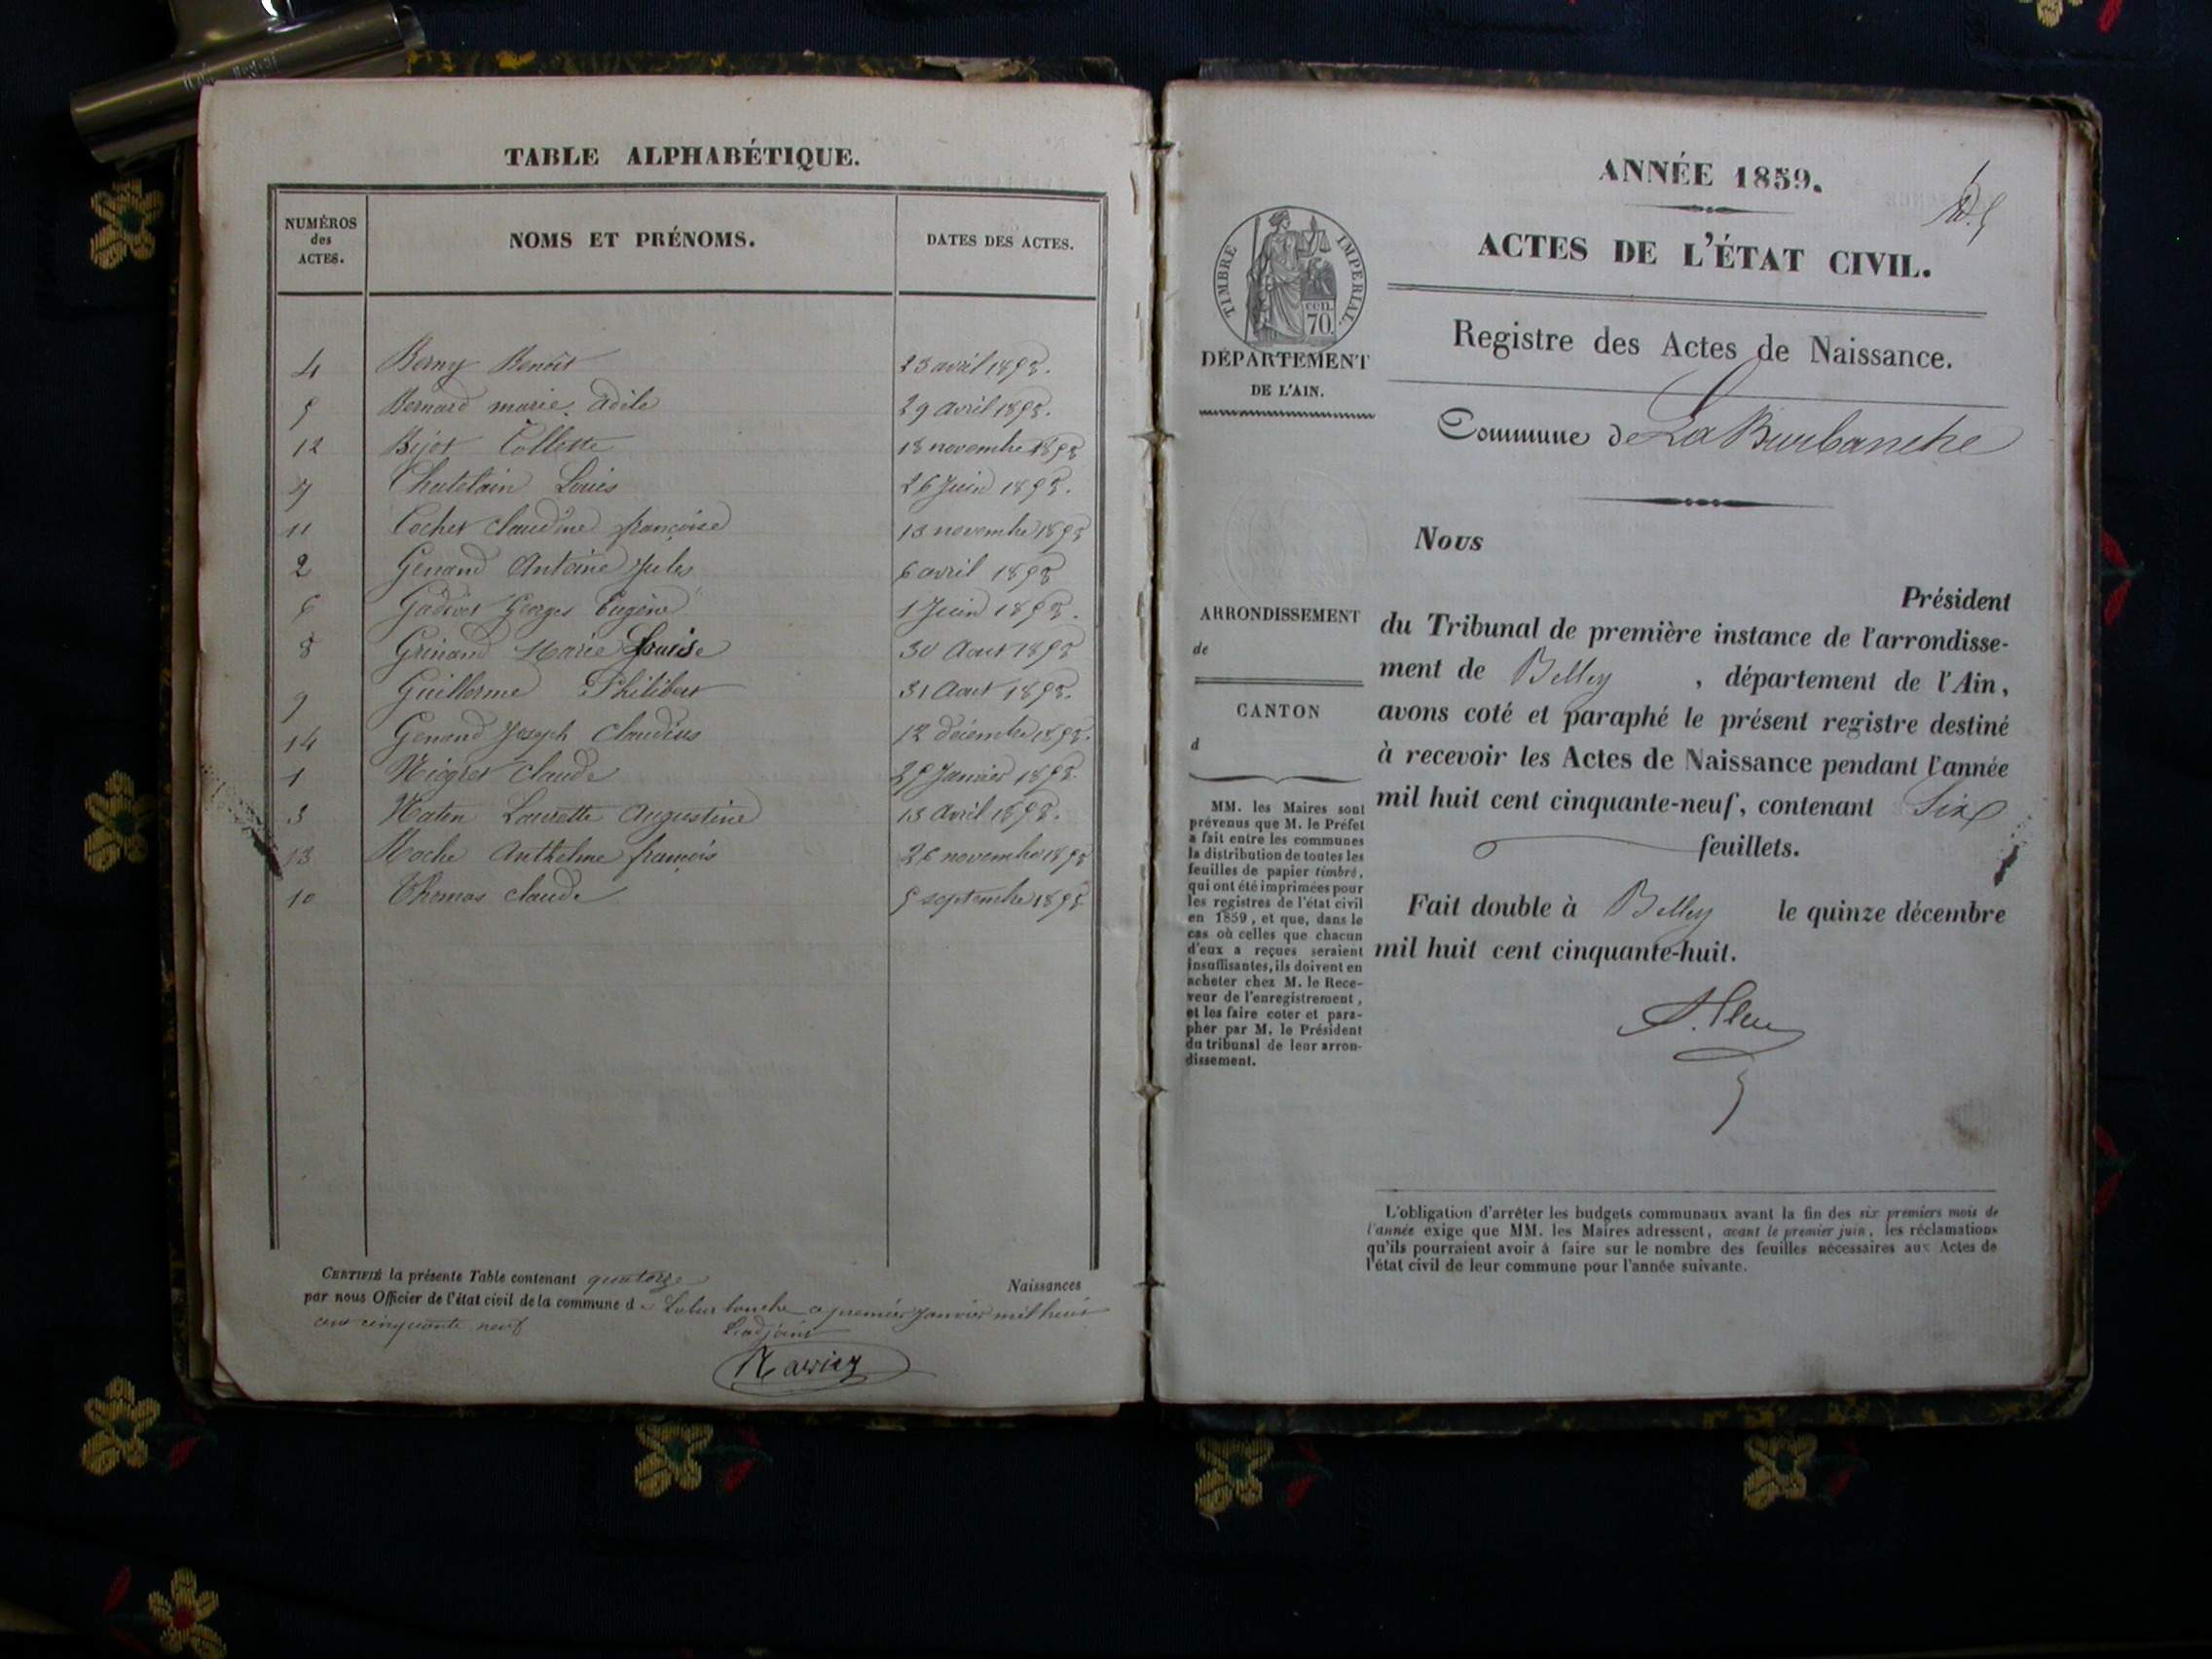 TABLE ALPHABÉTIQUE.
NUMÉROS des ACTES. NOMS ET PRÉNOMS. DATES DES ACTES.
4 Berny Benoit 23 avril 1858.
5 Bernard marie adèle 29 avril 1858.
12 Bijot Collette 18 novembre 1858
7 Chatelain Louis 26 Juin 1858.
11 Cochet Claudine françoise 13 novembre 1858
2 Genand Antoine Jules 6 avril 1858
6 Georges Eugène 1 Juin 1858.
8 Marie Louise 30 Aout 1858
9 Guillerme Philibert 31 Aout 1858.
14 Genand Joseph Claudius 12 décembre 1858.
1 Claude Janvier 1858.
3 Laurette Augustine 13 Avril 1858.
13 Roche Anthelme françois 26 novembre 1858
10 Thomas claude 5 septembre 1858
CERTIFIÉ la présente Table contenant quatorze Naissances
par nous Officier de l'état civil de la commune d premier Janvier mil huit
cent cinquante neuf
L'adjoint
ANNÉE 1859.
ACTES DE L'ÉTAT CIVIL.
TIMBRE IMPERIAL.
cen.
70.
DÉPARTEMENT
DE L'AIN.
Registre des Actes de Naissance.
Commune de La Burbanche
Nous
Président
du Tribunal de première instance de l'arrondisse-
ment de Belley , département de l'Ain,
avons coté et paraphé le présent registre destiné
à recevoir les Actes de Naissance pendant l'année
mil huit cent cinquante-neuf, contenant Six
feuillets.
Fait double à Belley le quinze décembre
mil huit cent cinquante-huit.
ARRONDISSEMENT
de
CANTON
d
MM. les Maires sont
prévenus que M. le Préfet
a fait entre les communes
la distribution de toutes les
feuilles de papier timbré,
qui ont été imprimées pour
les registres de l'état civil
en 1859, et que, dans le
cas où celles que chacun
d'eux a reçues seraient
insuffisantes, ils doivent en
acheter chez M. le Rece-
veur de l'enregistrement,
et les faire coter et para-
pher par M. le Président
du tribunal de leur arron-
dissement.
L'obligation d'arrêter les budgets communaux avant la fin des six premiers mois de
l'année exige que MM. les Maires adressent, avant le premier juin, les réclamations
qu'ils pourraient avoir à faire sur le nombre des feuilles nécessaires aux Actes de
l'état civil de leur commune pour l'année suivante.